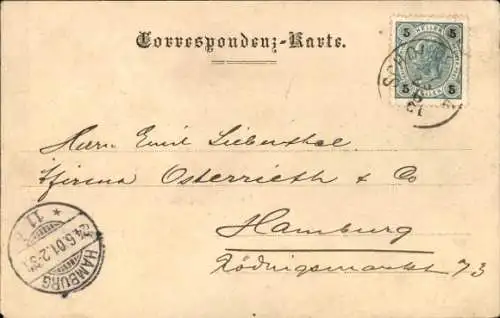 Correspondenz-Karte.
5 HELLER 5
5 HELLER 5
Herrn Emil Liebenthal.
p/Firma Osterrieth & Co
Hamburg
Rödingsmarkt 73
HAMBURG
24.6.01.2-3N.
* 11